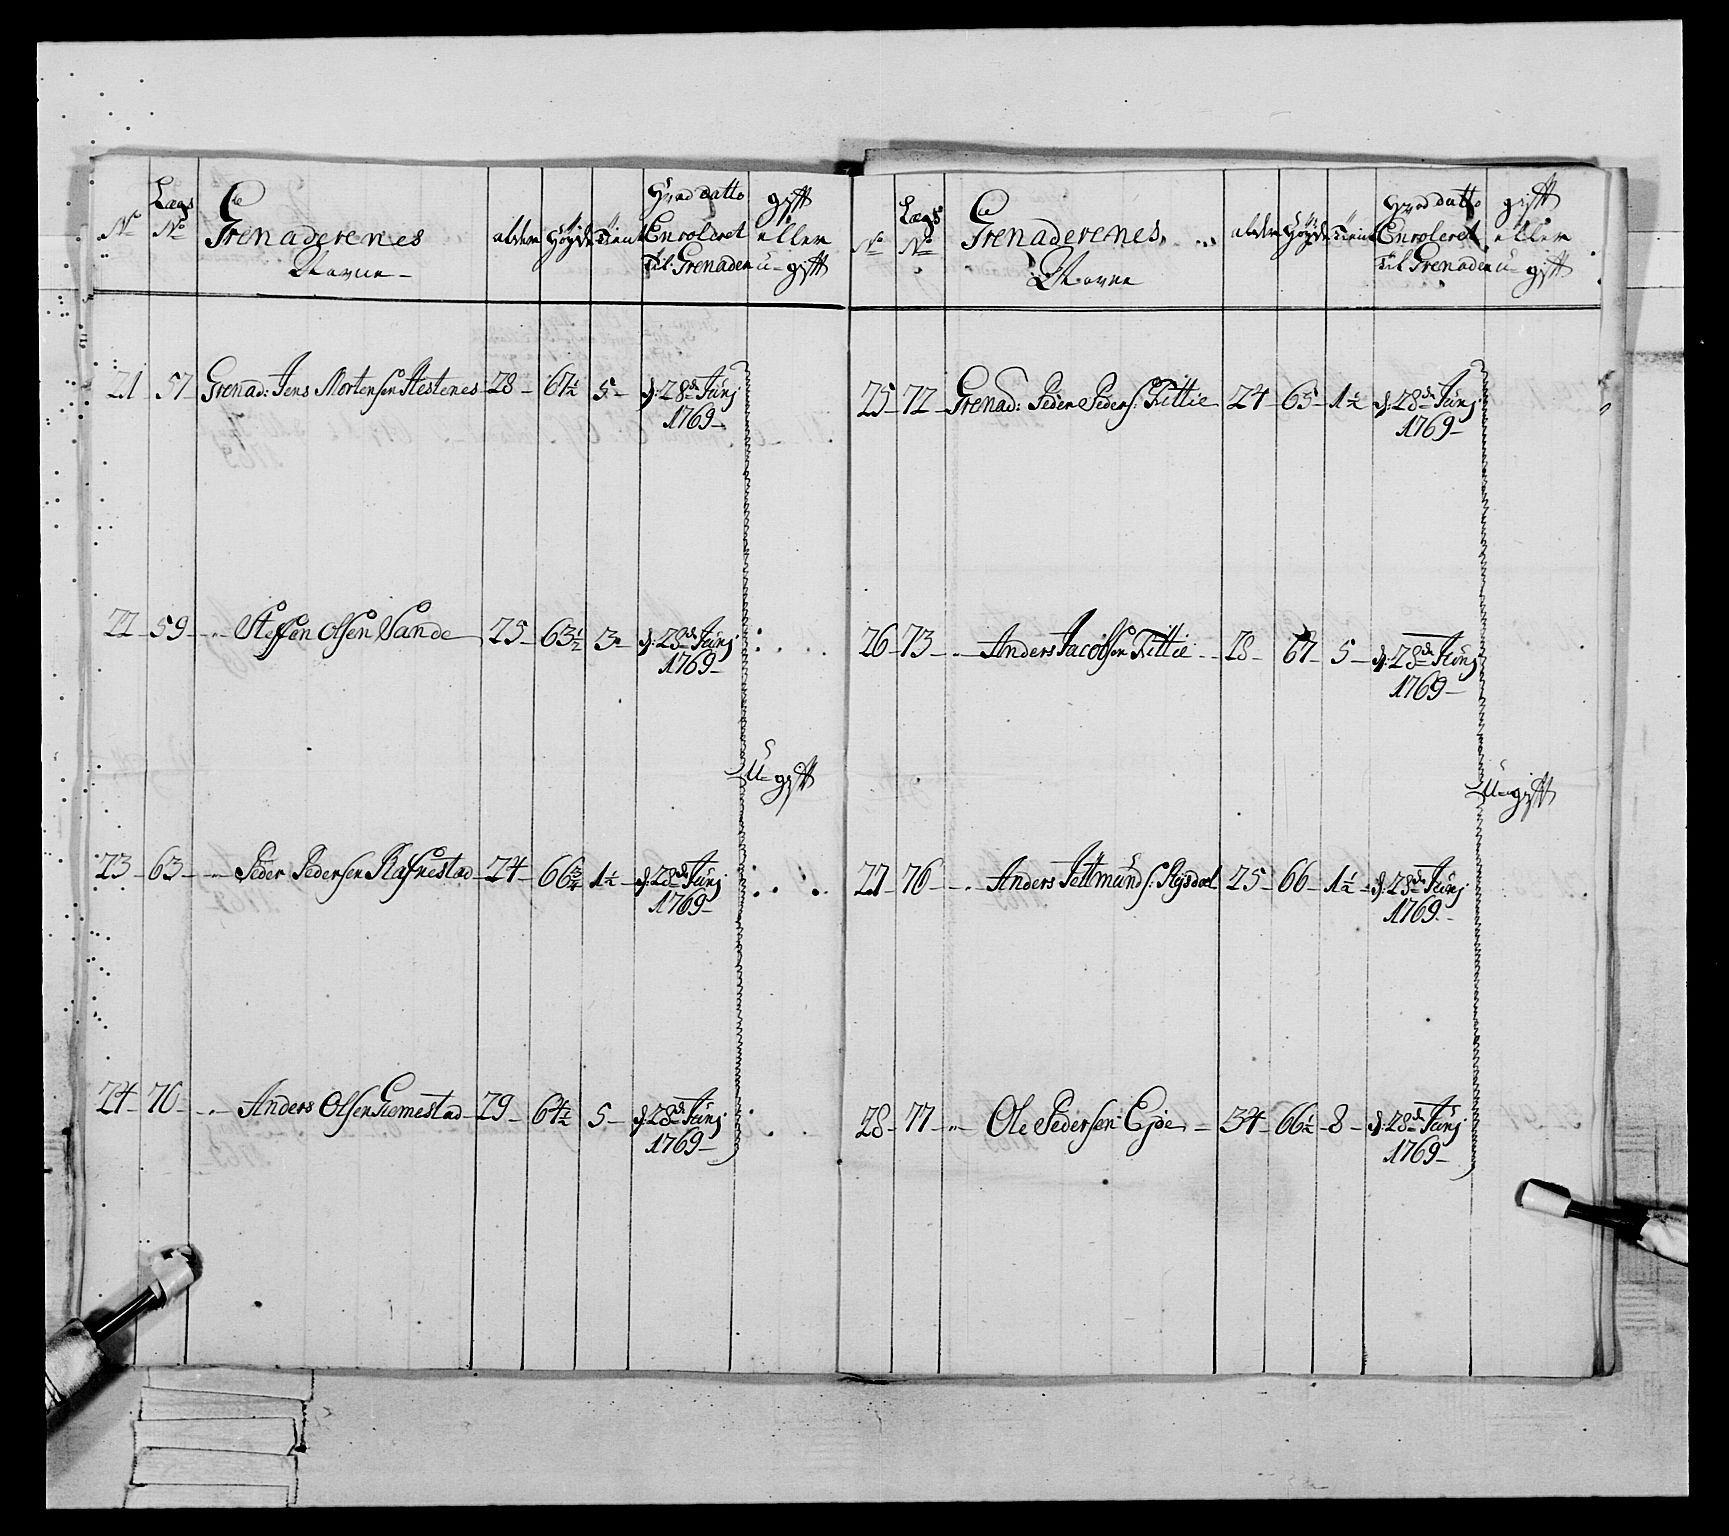 No Lægs No Grenaderenes Navne - alder Høyde tient Hvad datto Enroleret til Grenader gift eller u-gift
21 57 Grenad: Jens Mortensen Nestenes 28 - 67½ 5 - d: 28de Junj 1769 -
22 59 - " - Steffen Olsen Sande 25 - 63½ 3 - d: 28de Junj 1769 -
U-gift
23 63 - " - Peder Pedersen Rafnestad 24 - 66¾ 1½ - d: 28de Junj 1769 -
24 70 - " - Anders Olsen 29 - 64½ 5 - d: 28de Junj 1769 -
No Lægs No Grenaderenes Navne alder Høyde tient Hvad datto Enroleret til Grenader gift eller u-gift
25 72 Grenad: Peder Peders: Tittie 24 - 65 - 1½ d: 28de Junj 1769 -
26 73 - " - Anders Jacobsen Tittie - 28 - 67 - 5 - d: 28de Junj 1769 -
U-gift
27 76 - " - Anders 25 - 66 - 1½ - d: 28de Junj 1769 -
28 77 - " - Ole Pedersen Eje - 34 - 66½ - 8 - d: 28de Junj 1769 -